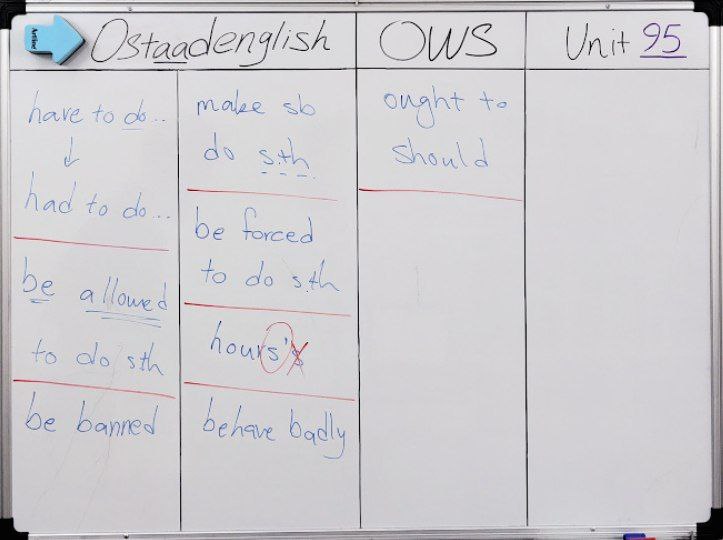 Ostaadenglish
OWS
Unit 95
have to do...
↓
had to do...
be allowed
to do sth
be banned
make sb
do s.th.
be forced
to do s.th
hours's
behave badly
ought to
should